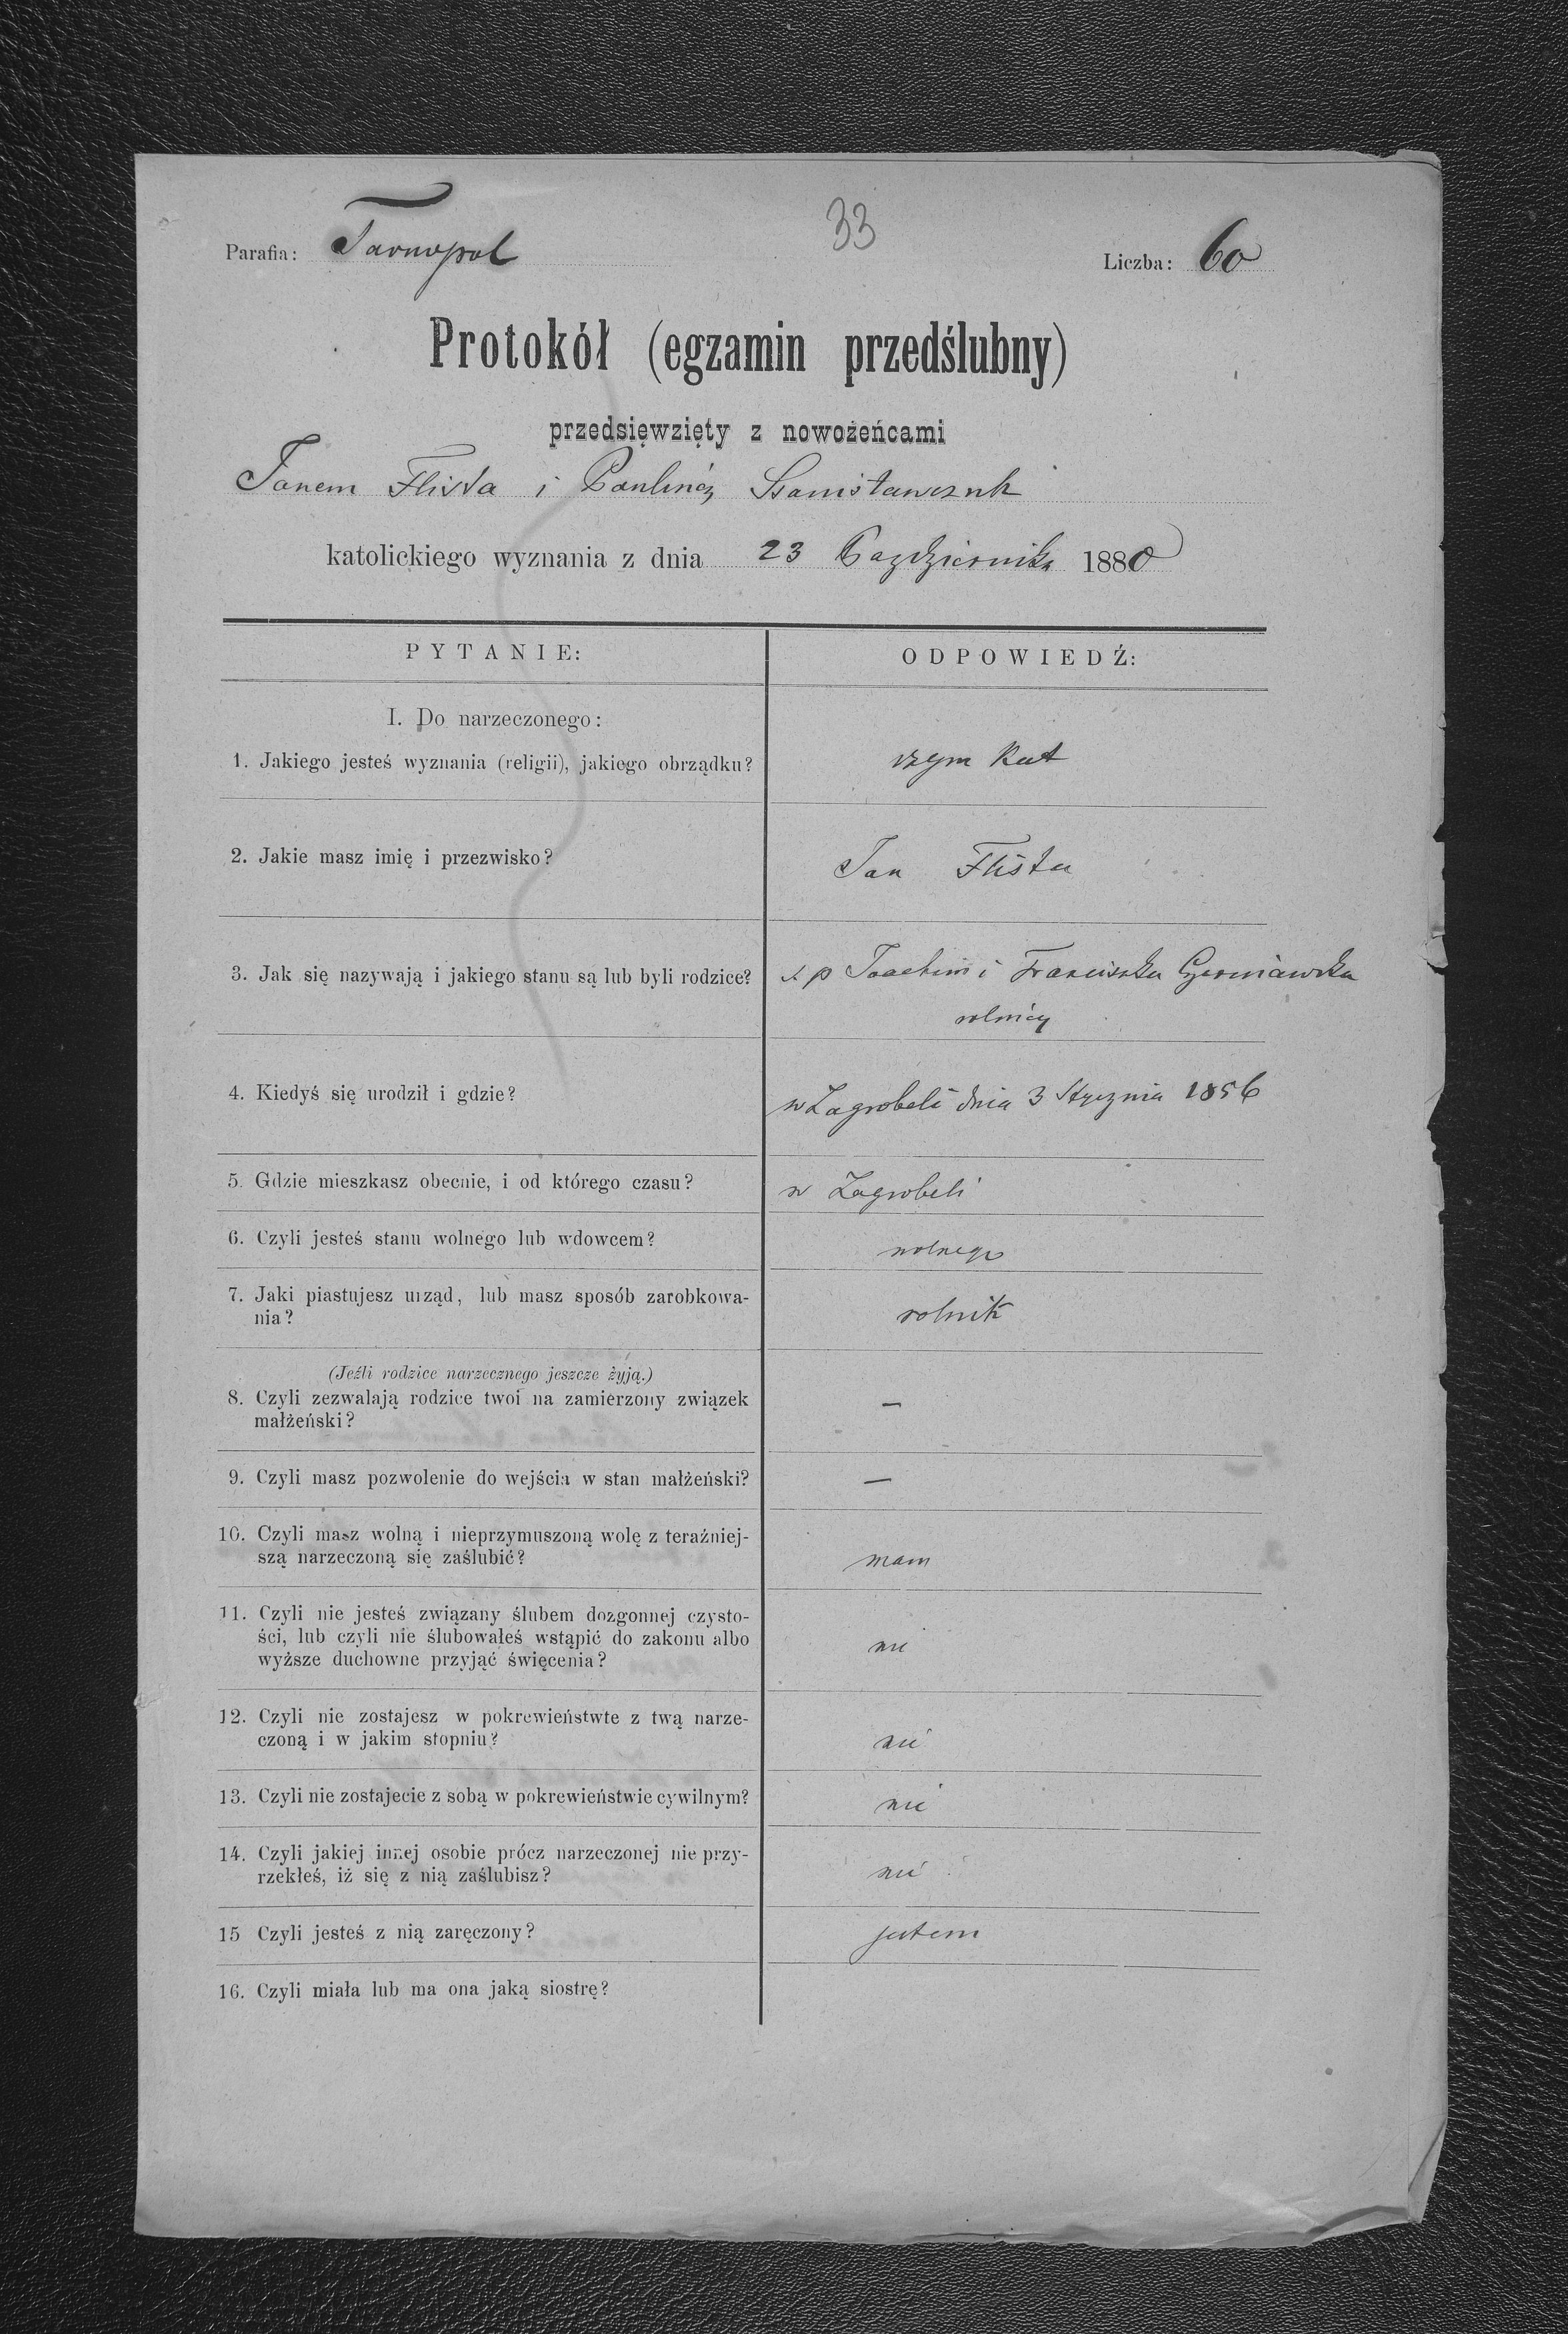 Parafia: Tarnopol
33
Liczba: 60
Protokół (egzamin przedślubny)
przedsięwzięty z nowożeńcami
Janem Flista i Pauliną Stanisławczuk
katolickiego wyznania z dnia 23 Października 1880
PYTANIE:
ODPOWIEDŹ:
I. Do narzeczonego:
1. Jakiego jesteś wyznania (religii), jakiego obrządku?
rzym kat
2. Jakie masz imię i przezwisko?
Jan Flista
3. Jak się nazywają i jakiego stanu są lub byli rodzice?
ś p Joachim i Franciszka Czerniawska
rolnicy
4. Kiedyś się urodził i gdzie?
w Zagrobeli dnia 3 Stycznia 1856
5. Gdzie mieszkasz obecnie, i od którego czasu?
w Zagrobeli
6. Czyli jesteś stanu wolnego lub wdowcem?
wolnego
7. Jaki piastujesz urząd, lub masz sposób zarobkowa-
nia?
rolnik
(Jeźli rodzice narzecznego jeszcze żyją.)
8. Czyli zezwalają rodzice twoi na zamierzony związek
małżeński?
—
9. Czyli masz pozwolenie do wejścia w stan małżeński?
—
10. Czyli masz wolną i nieprzymuszoną wolę z teraźniej-
szą narzeczoną się zaślubić?
mam
11. Czyli nie jesteś związany ślubem dozgonnej czysto-
ści, lub czyli nie ślubowałeś wstąpić do zakonu albo
wyższe duchowne przyjąć święcenia?
nie
12. Czyli nie zostajesz w pokrewieństwte z twą narze-
czoną i w jakim stopniu?
nie
13. Czyli nie zostajecie z sobą w pokrewieństwie cywilnym?
nie
14. Czyli jakiej innej osobie prócz narzeczonej nie przy-
rzekłeś, iż się z nią zaślubisz?
nie
15 Czyli jesteś z nią zaręczony?
jestem
16. Czyli miała lub ma ona jaką siostrę?